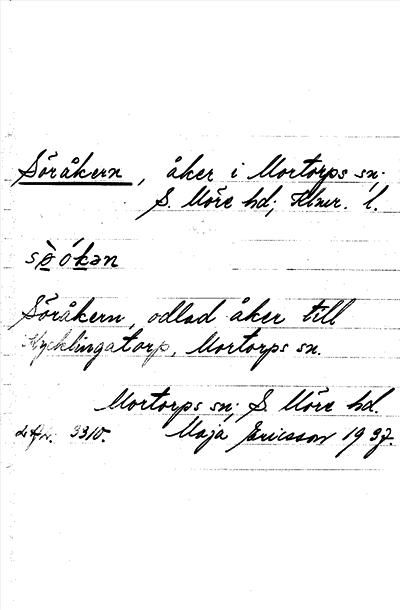 Söråkern, åker i Mortorps sn;
S. Möre hd; Klmr. l.
sö̀ókən
Söråkern, odlad åker till
Kycklingatorp, Mortorps sn.
Mortorps sn; S. Möre hd.
3310. Maja Ericsson 1937.